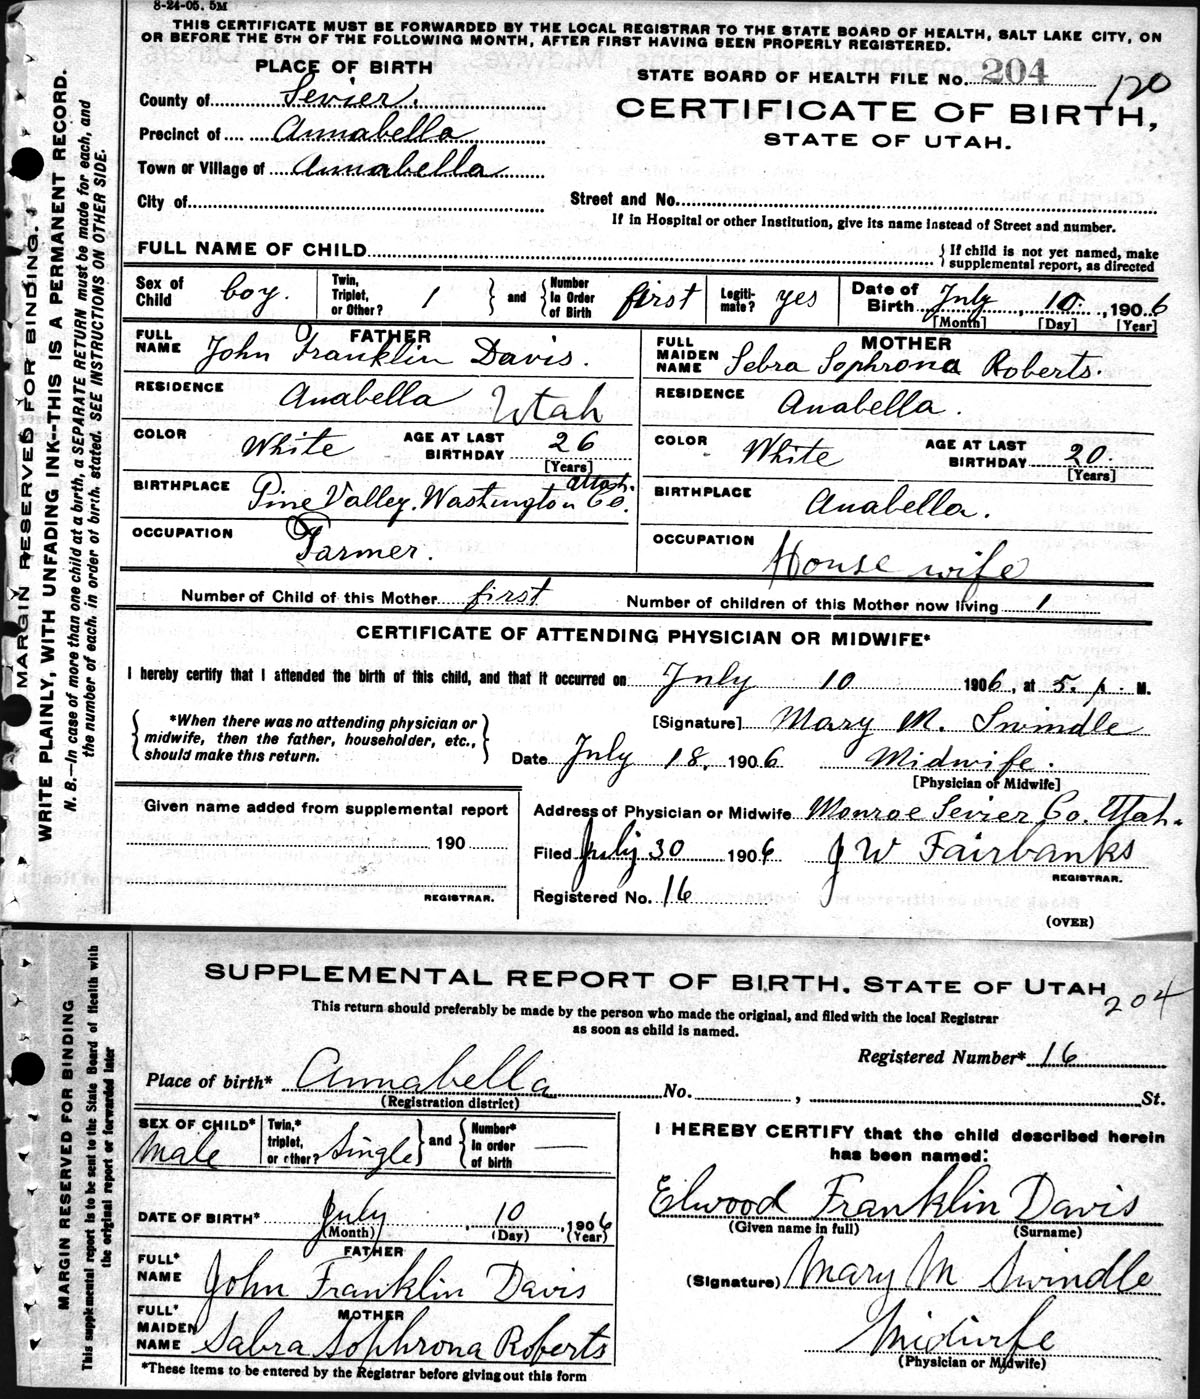 8-24-05. 5M
THIS CERTIFICATE MUST BE FORWARDED BY THE LOCAL REGISTRAR TO THE STATE BOARD OF HEALTH, SALT LAKE CITY, ON
OR BEFORE THE 5TH OF THE FOLLOWING MONTH, AFTER FIRST HAVING BEEN PROPERLY REGISTERED.
PLACE OF BIRTH
STATE BOARD OF HEALTH FILE No. 204
120
County of Sevier.
CERTIFICATE OF BIRTH,
Precinct of Annabella
STATE OF UTAH.
Town or Village of Annabella
City of
Street and No.
If in Hospital or other Institution, give its name instead of Street and number.
FULL NAME OF CHILD
{If child is not yet named, make
supplemental report, as directed
Sex of Child boy. Twin, Triplet, or Other? 1 } and { Number In Order of Birth first Legiti-mate? yes Date of Birth July 10, 1906
[Month] [Day] [Year]
FATHER
FULL NAME John Franklin Davis.
MOTHER
FULL MAIDEN NAME Sebra Sophrona Roberts.
RESIDENCE Anabella Utah
RESIDENCE Anabella.
COLOR White AGE AT LAST BIRTHDAY 26 [Years]
COLOR White AGE AT LAST BIRTHDAY 20. [Years]
BIRTHPLACE Pine Valley, Washington Co. Utah.
BIRTHPLACE Anabella.
OCCUPATION Farmer.
OCCUPATION House wife
Number of Child of this Mother first Number of children of this Mother now living 1
CERTIFICATE OF ATTENDING PHYSICIAN OR MIDWIFE*
I hereby certify that I attended the birth of this child, and that it occurred on July 10 1906, at 5. p. M.
{ *When there was no attending physician or
midwife, then the father, householder, etc.,
should make this return. }
[Signature] Mary M. Swindle
Date July 18, 1906 Midwife.
[Physician or Midwife]
Given name added from supplemental report
190
REGISTRAR.
Address of Physician or Midwife Monroe Sevier Co. Utah.
Filed July 30 1906 J W Fairbanks
REGISTRAR.
Registered No. 16
(OVER)
MARGIN RESERVED FOR BINDING.
WRITE PLAINLY, WITH UNFADING INK--THIS IS A PERMANENT RECORD.
N. B.—In case of more than one child at a birth, a SEPARATE RETURN must be made for each, and
the number of each, in order of birth, stated. SEE INSTRUCTIONS ON OTHER SIDE.
SUPPLEMENTAL REPORT OF BIRTH. STATE OF UTAH
204
This return should preferably be made by the person who made the original, and filed with the local Registrar
as soon as child is named.
Registered Number* 16
Place of birth* Annabella No. , St.
(Registration district)
SEX OF CHILD* Male Twin,* triplet, or other? Single } and { Number* In order of birth —
DATE OF BIRTH* July 10, 1906
(Month) (Day) (Year)
FATHER
FULL* NAME John Franklin Davis
MOTHER
FULL* MAIDEN NAME Sabra Sophrona Roberts
*These items to be entered by the Registrar before giving out this form
I HEREBY CERTIFY that the child described herein
has been named:
Elwood Franklin Davis
(Given name in full) (Surname)
(Signature) Mary M Swindle
Midwife
(Physician or Midwife)
MARGIN RESERVED FOR BINDING
This supplemental report is to be sent to the State Board of Health with
the original report or forwarded later